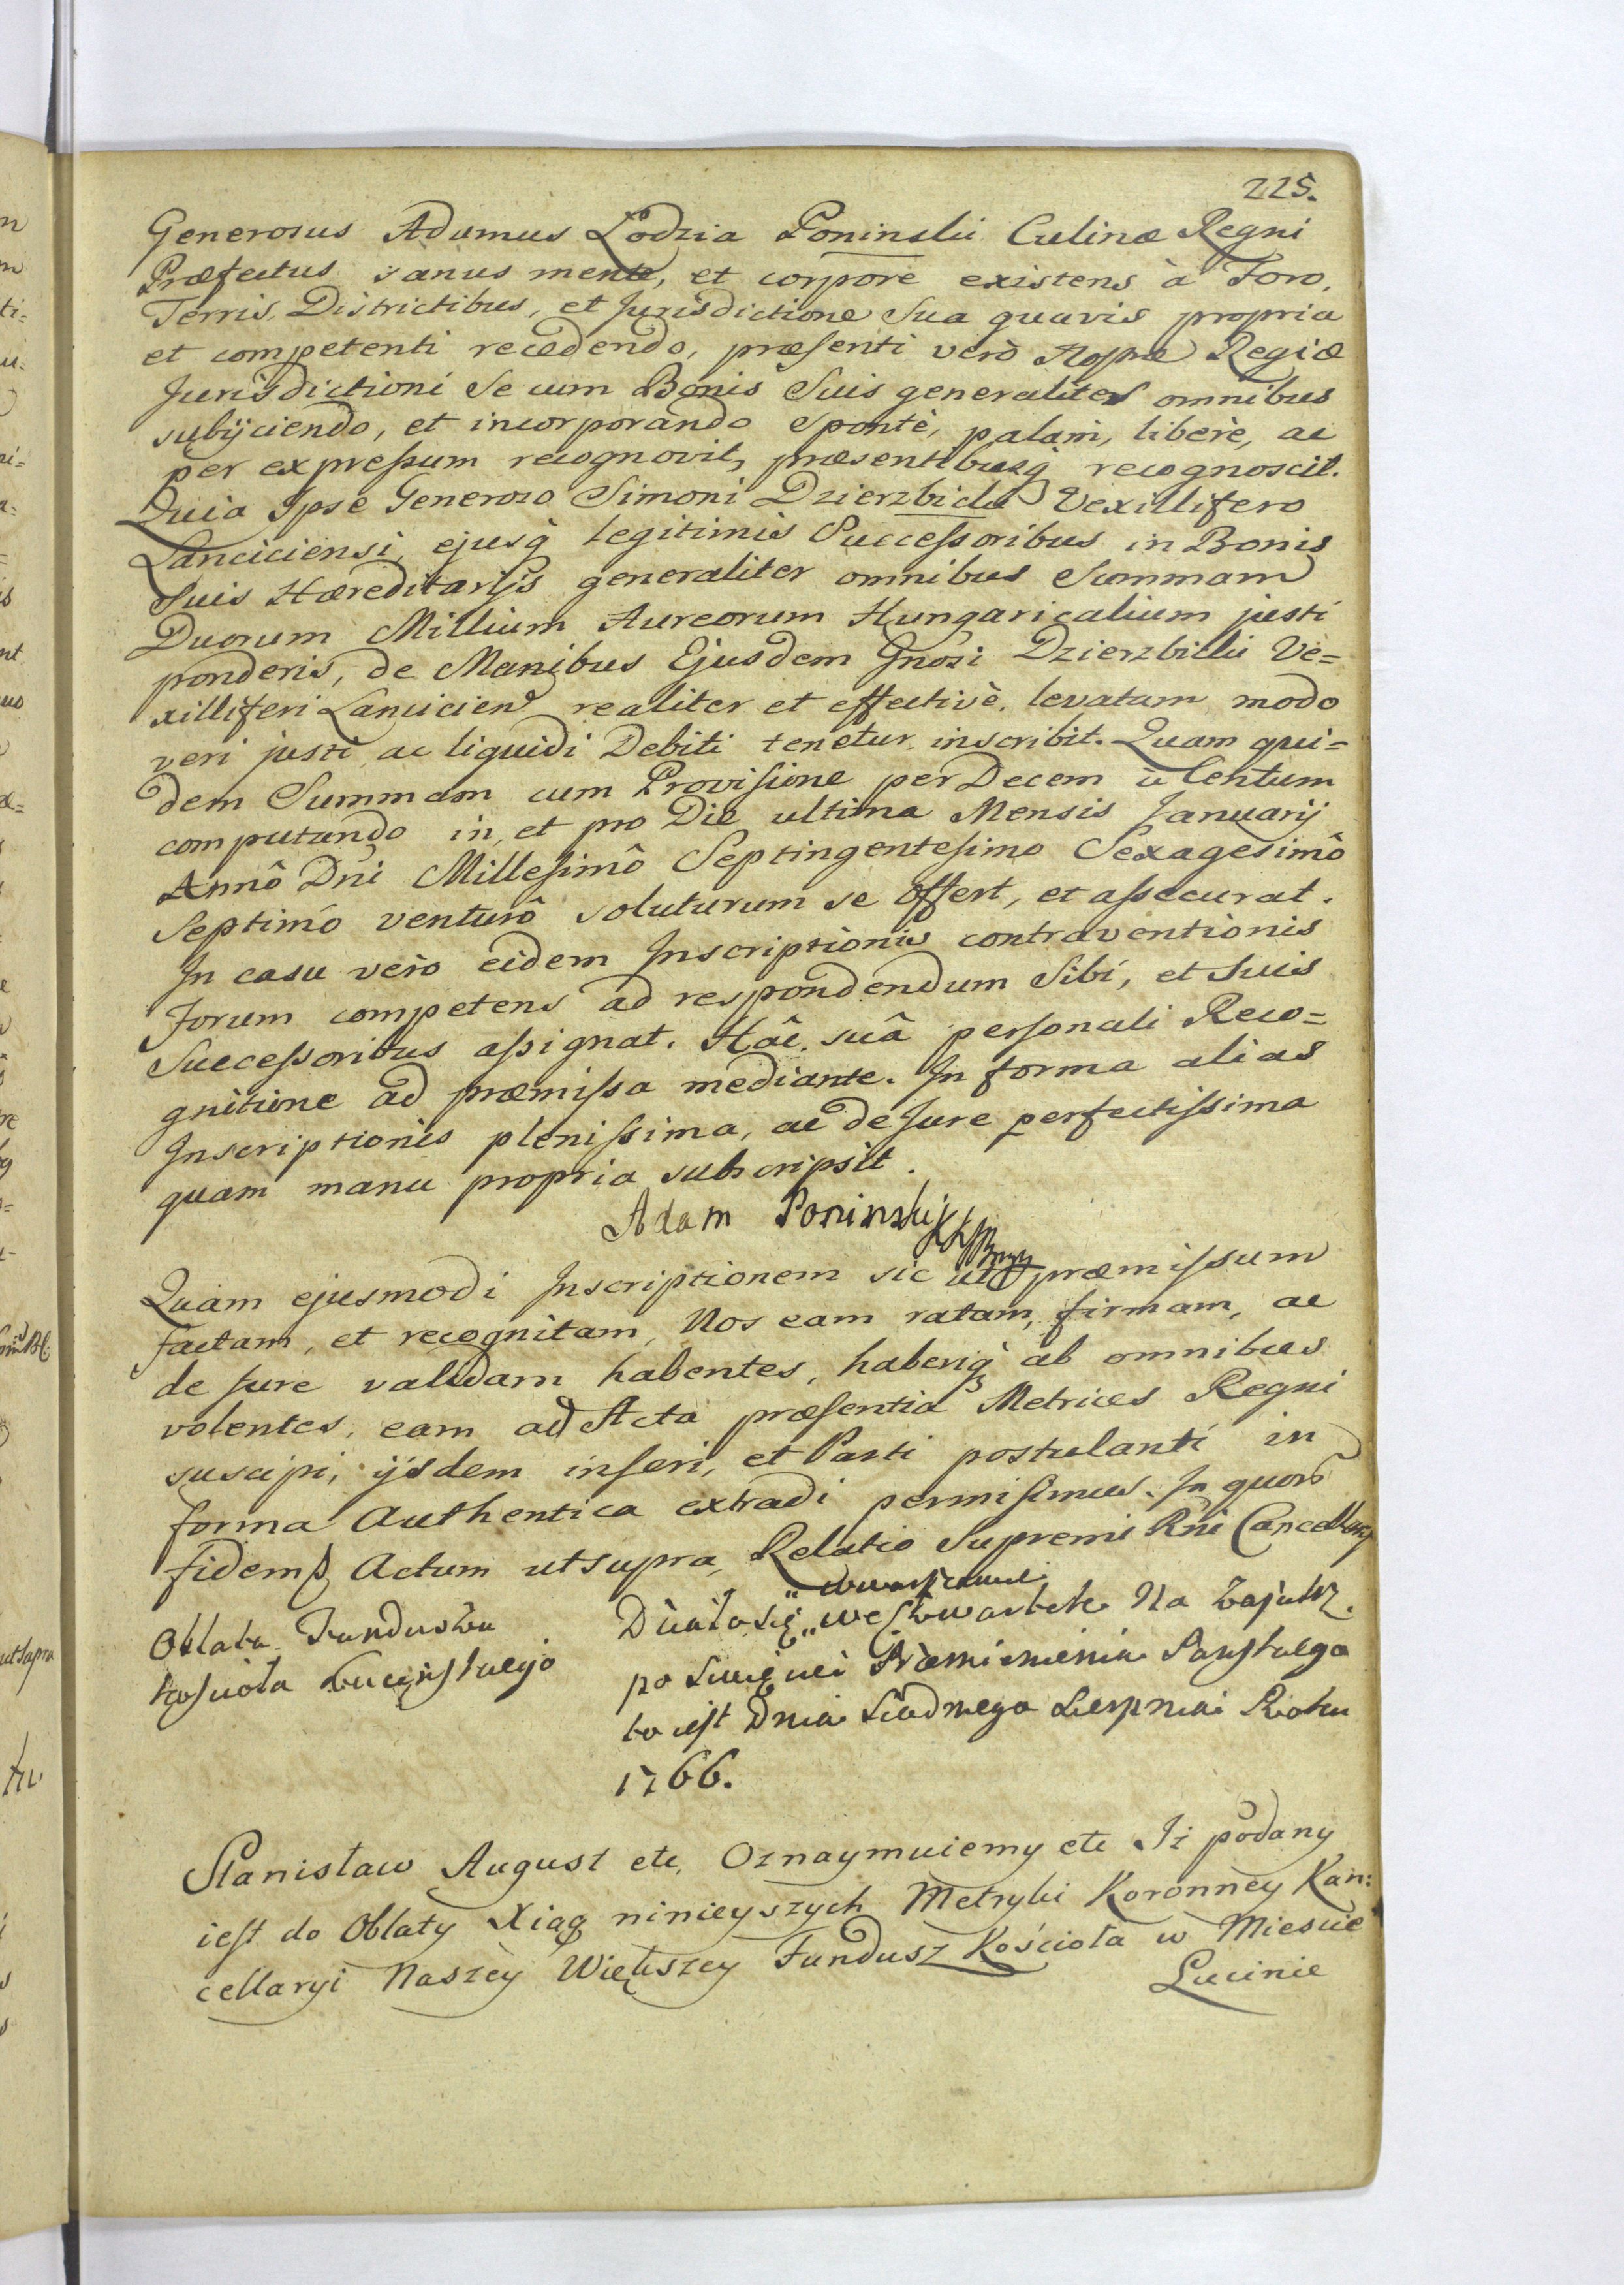 225.
Generosus Adamus Lodzia Poninski Culinæ Regni
Præfectus sanus mente, et corpore existens à Foro,
Terris, Districtibus, et Jurisdictione Sua quavis propria
et competenti recedendo, præsenti verò Regiæ
Jurisdictioni Se cum Bonis Suis generaliter omnibus
subijciendo, et incorporando Spontè, palam, liberè, ac
per expressum recognovit, præsentibusq recognoscit.
Quia Ipse Generoso Simoni Dzierzbicki Vexillifero
Lanciciensi, ejusq legitimis Successoribus in Bonis
Suis Hæreditarijs generaliter omnibus Summam
Duorum Millium Aureorum Hungaricalium justi
ponderis, de Manibus Ejusdem Gnosi Dzierzbicki Ve=
xilliferi Lancicien realiter et effectivè levatam modo
veri justi ac liquidi Debiti tenetur inscribit. Quam qui=
dem Summam cum Provisione per Decem à Centum
computando in, et pro Die ultima Mensis Januarij
Annô Dni Millesimô Septingentesimo Sexagesimô
Septimo venturô soluturum se offert, et assecurat.
In casu vero eidem Inscriptionis contraventionis
Forum competens ad respondendum Sibi, et Suis
Successoribus assignat. Hâc suâ personali Reco=
gnitione ad præmissa mediante. In forma alias
Inscriptionis plenissima, ac de Jure perfectissima
quam manu propria subscripsit.
Adam Poninski
Quam ejusmodi Inscriptionem sic ut præmissum
factam, et recognitam, Nos eam ratam, firmam, ac
de Jure validam habentes, haberiq ab omnibus
volentes, eam ad Acta præsentia Metrices Regni
suscipi, ijsdem inseri, et Parti postulanti in
forma Authentica extradi permisimus. In quorū
fidem Actum ut supra, Relatio Supremi Rni Cancellarij
Oblata Funduszu
Kościoła Lucinskiego
w Warszawie
Działo się we Czwartek Na Zajutrz
po Swięcie Przemienienia Pańskiego
to iest Dnia Siodmego Sierpnia Roku
1766.
Stanisław August etc. Oznaymuiemy etc Iż podany
iest do Oblaty Xiąg ninieyszych Metryki Koronney Kan:
cellaryi Naszey Większey Fundusz Kościoła w Miescie
Lucinie